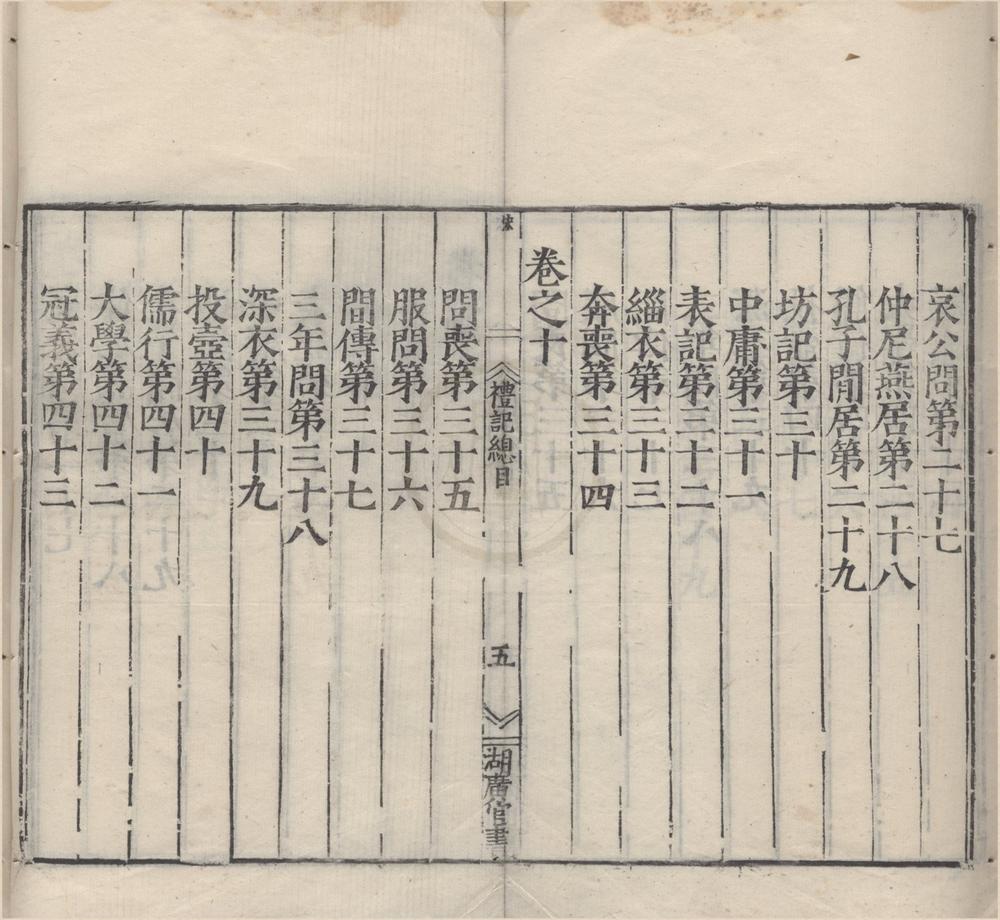 哀公問第二十七
仲尼燕居第二十八
孔子閒居第二十九
坊記第三十
中庸第三十一
表記第三十二
緇衣第三十三
奔喪第三十四
卷之十
禮記總目
五
湖廣官書
問喪第三十五
服問第三十六
間傳第三十七
三年問第三十八
深衣第三十九
投壺第四十
儒行第四十一
大學第四十二
冠義第四十三